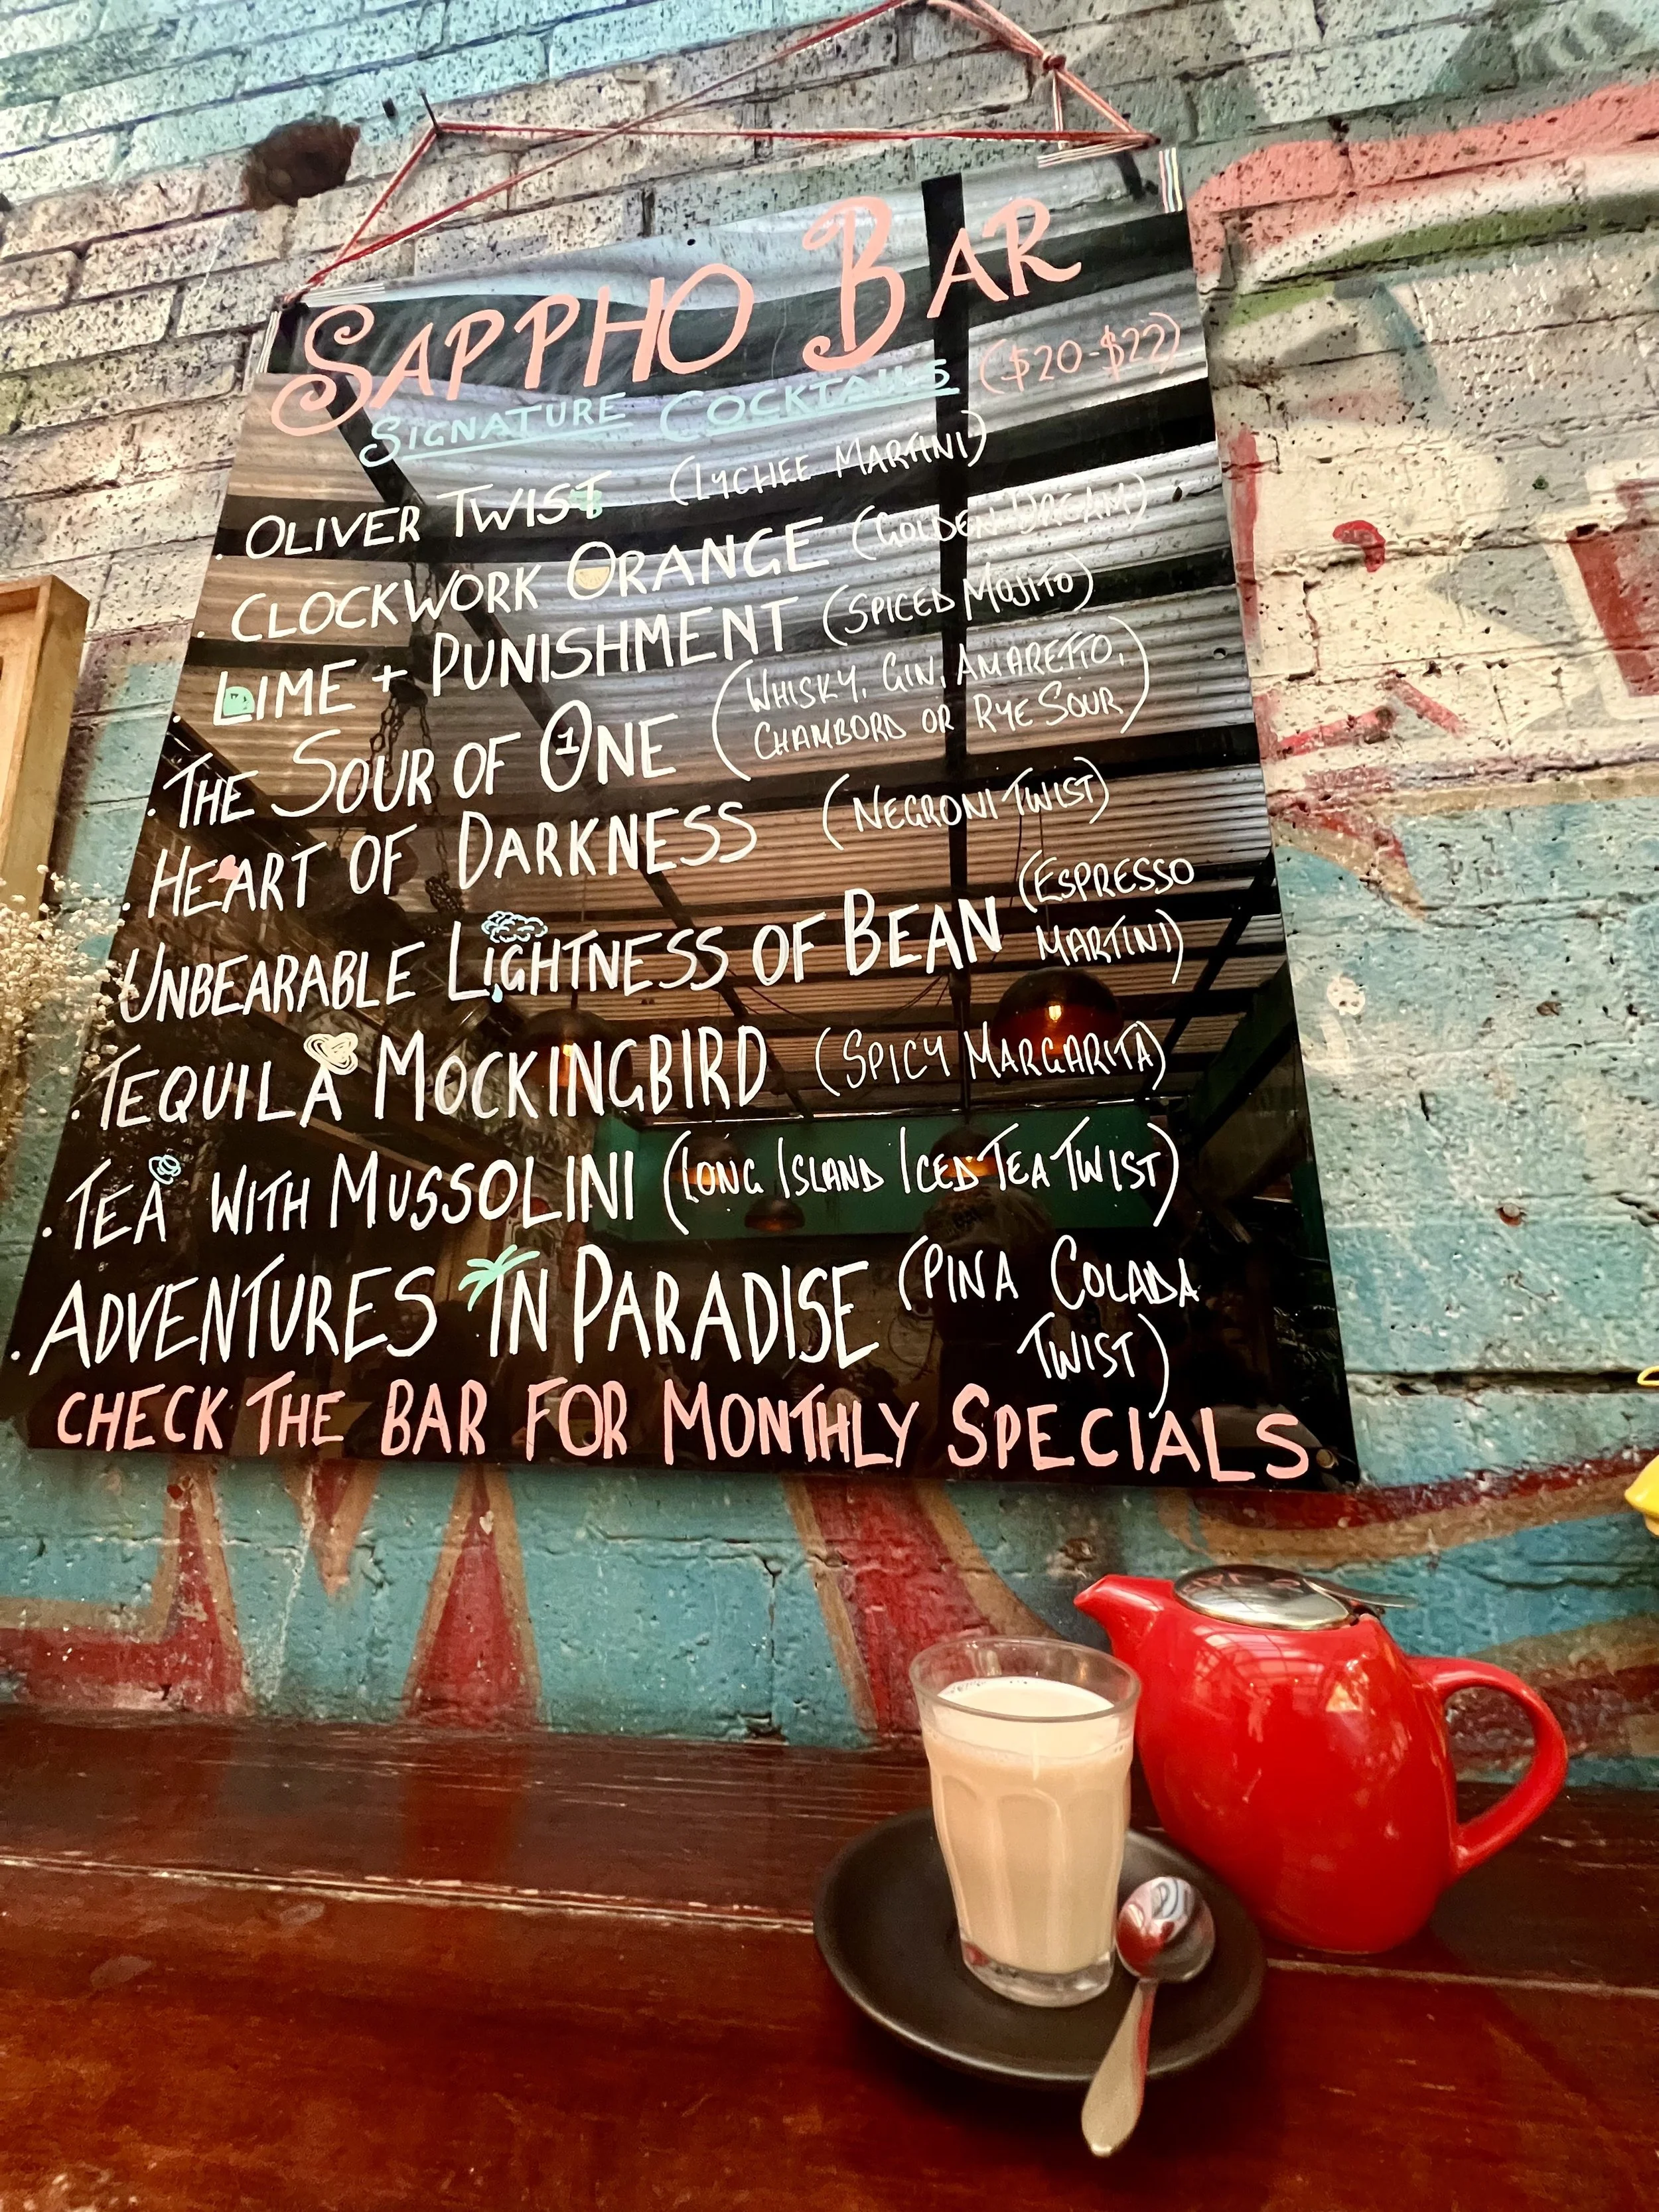 SAPPHO BAR
SIGNATURE COCKTAILS ($20-$22)
. OLIVER TWIST (LYCHEE MARTINI)
. CLOCKWORK ORANGE (GOLDEN DREAM)
. LIME + PUNISHMENT (SPICED MOJITO)
. THE SOUR OF 1ONE (WHISKY, GIN, AMARETTO,
CHAMBORD OR RYE SOUR)
. HEART OF DARKNESS (NEGRONI TWIST)
UNBEARABLE LIGHTNESS OF BEAN (ESPRESSO
MARTINI)
. TEQUILA MOCKINGBIRD (SPICY MARGARITA)
. TEA WITH MUSSOLINI (LONG ISLAND ICED TEA TWIST)
. ADVENTURES IN PARADISE (PINA COLADA
TWIST)
CHECK THE BAR FOR MONTHLY SPECIALS